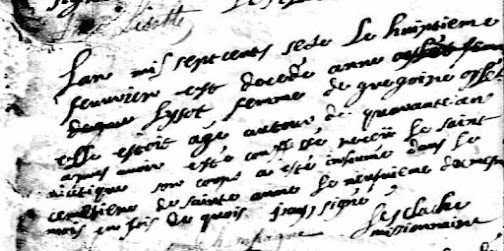 Lisotte
Lan mil septcents sese le huiptieme
feuvrier est decedé anne
lysot femme de gregoire
elle estoit agé autour de quarante an
apres avoir esté confessé receu le saint
viatique son corps a esté inhumé dans le
cemetiere de sainte anne le neufvieme du mesme
mois en fois de quois jay signé
Lesclache
missionnaire